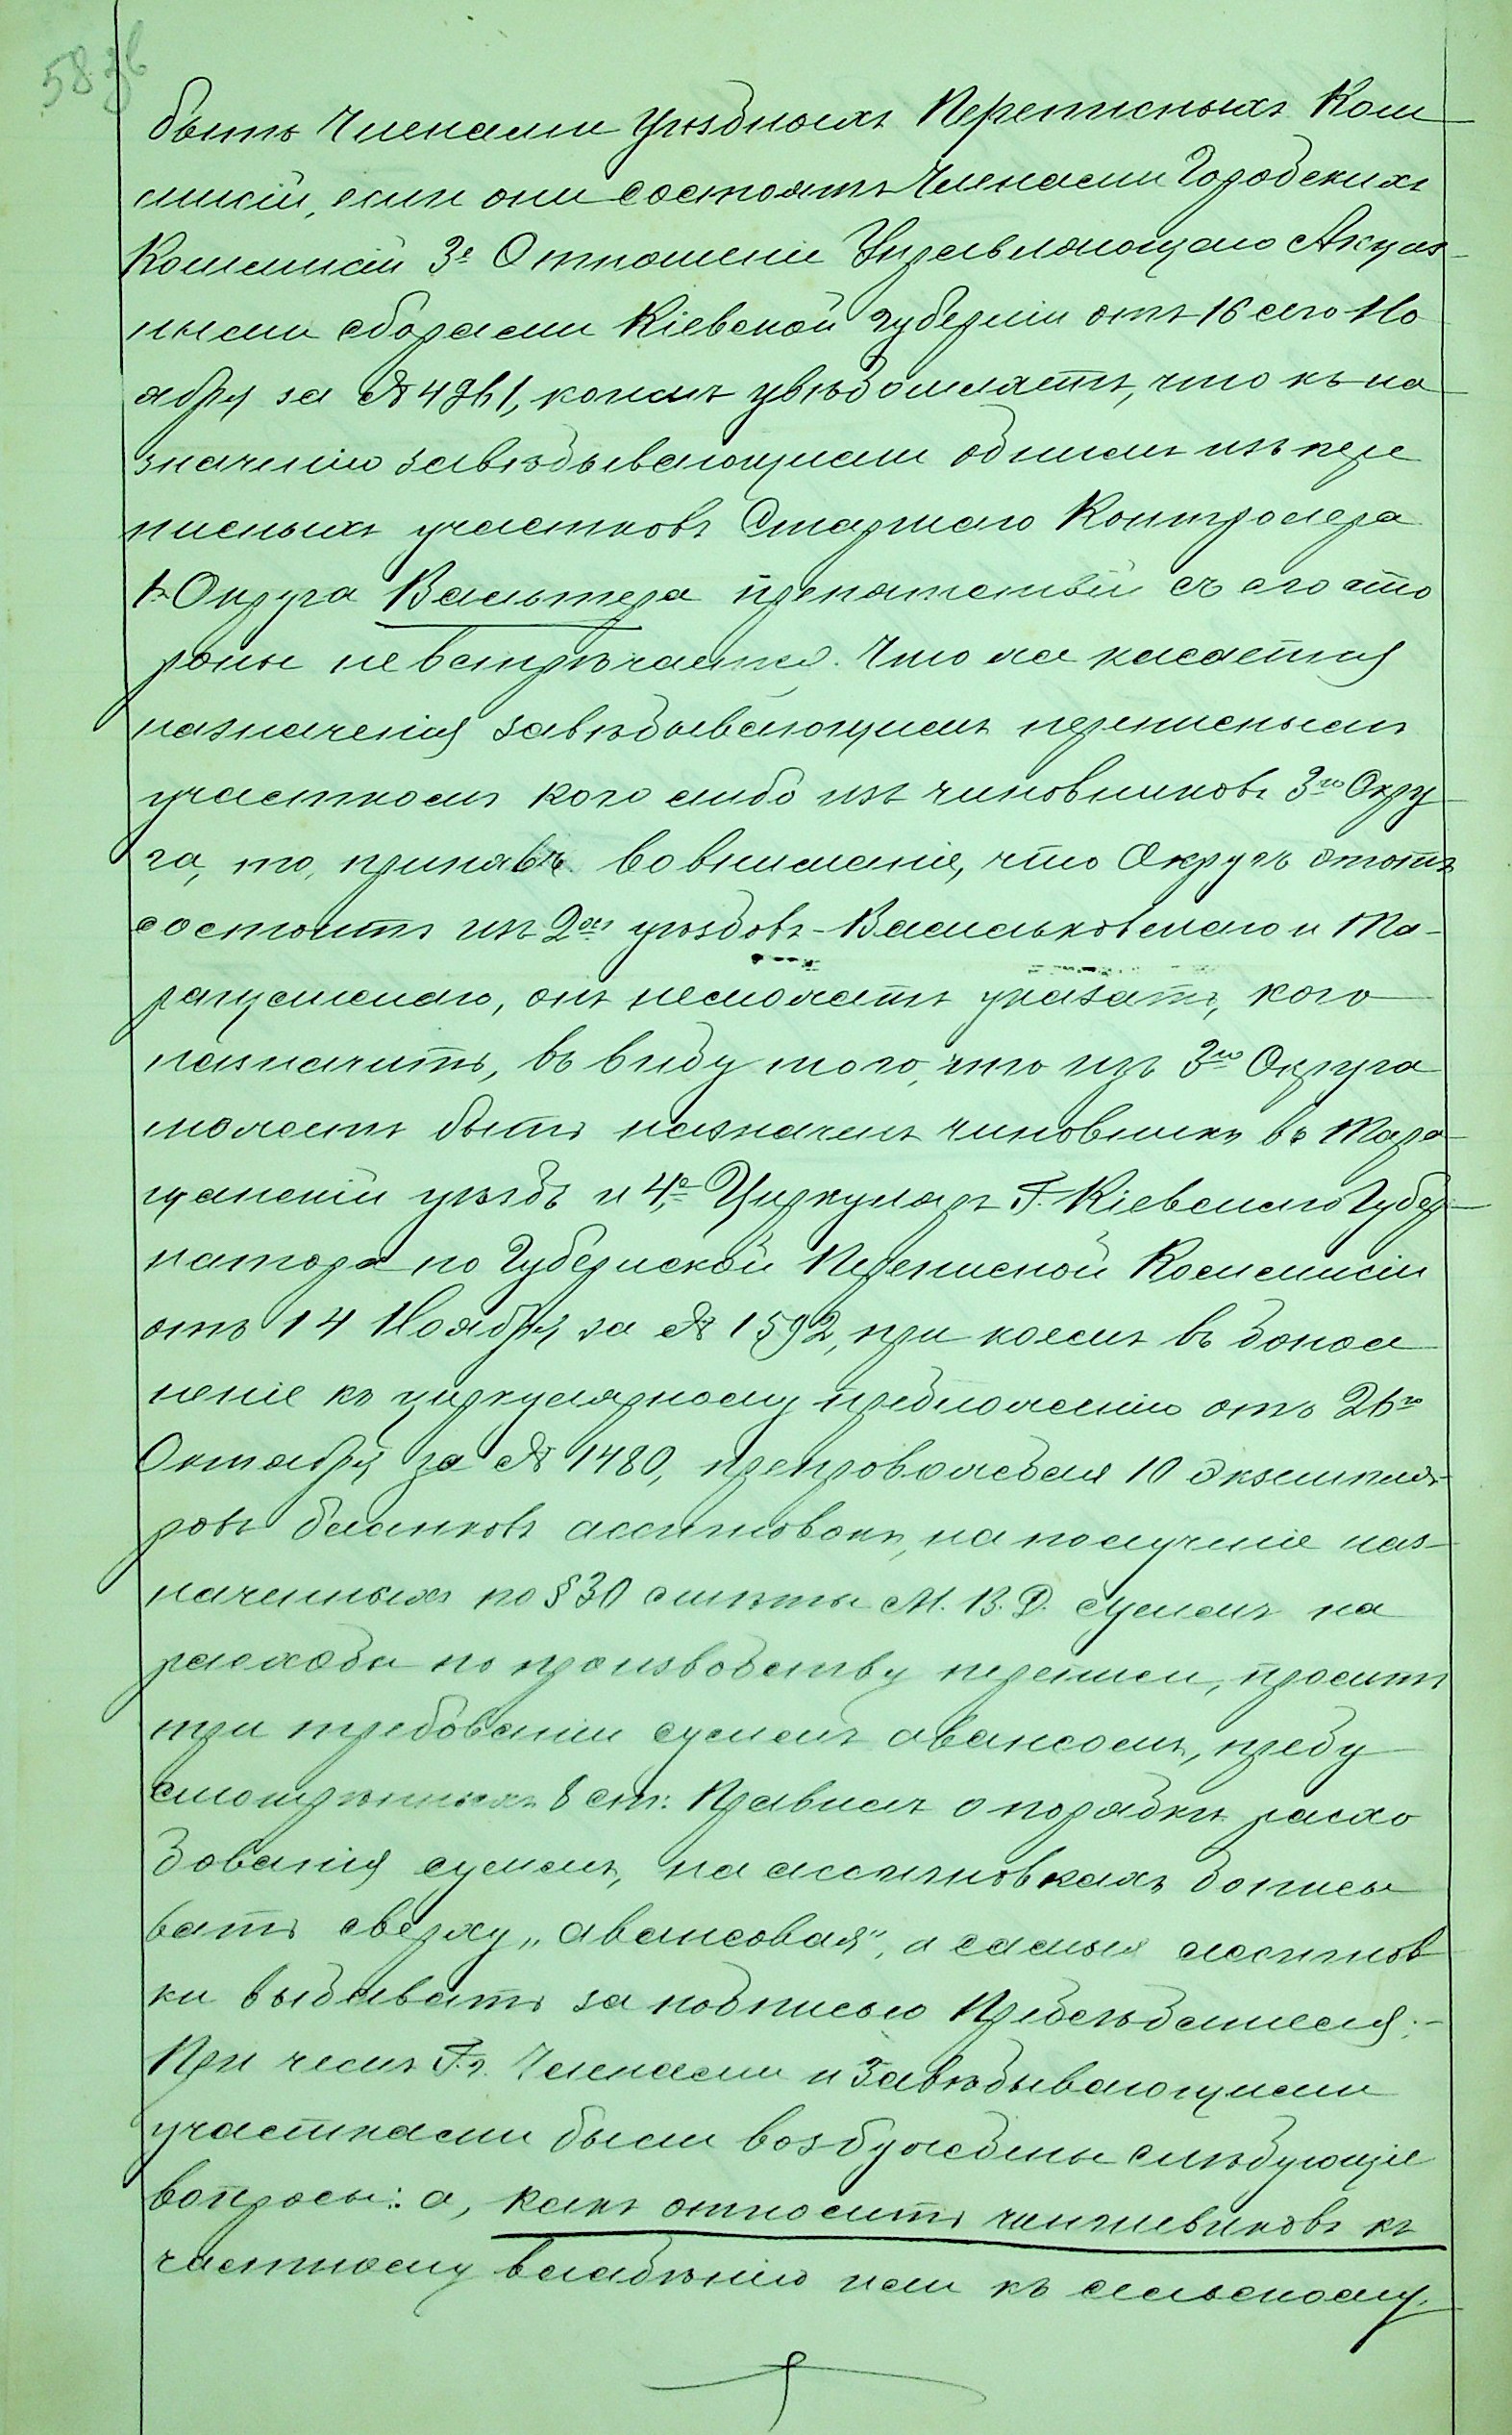 58 зв
быть Членами Уѣздныхъ Переписныхъ Ком
мисій, если они состоятъ Членами Городскихъ
Коммисій 3е Отношеніе Управляющаго Акциз-
ными сборами Кіевской губерніи отъ 16 сего Но
ября за № 4961, коимъ увѣдомляетъ, что къ на
значенію завѣдывающимъ однимъ изъ пере
писныхъ участковъ Старшаго Контролера
1го Округа Вальтера препятствій съ его сто
роны не встрѣчается. Что же касается
назначенія завѣдывающимъ переписнымъ
участкомъ кого либо изъ чиновниковъ 3го Окру
га, то, принявъ во вниманіе, что Округъ этотъ
состоитъ изъ 2хъ уѣздовъ - Васильковскаго и Та-
ращанскаго, онъ не можетъ указать, кого
назначить, въ виду того, что изъ 3го Округа
можетъ быть назначенъ чиновникъ въ Тара
щанскій уѣздъ и 4е, Циркуляръ Г. Кіевскаго Губер-
натора по Губернской Переписной Коммисіи
отъ 14 Ноября за № 1592, при коемъ въ допол
неніе къ циркулярному предложенію отъ 26го
Октября за № 1480, препровождая 10 экземпля-
ровъ бланковъ ассигновокъ, на полученіе наз-
наченныхъ по § 30 смѣты М. В. Д. суммъ на
расходы по производству переписи, проситъ
при требованіи суммъ авансомъ, преду
смотрѣнныхъ 8 ст: Правилъ о порядкѣ расхо
дованія суммъ, на ассигновкахъ дописы
вать сверху „авансовая", а самыя ассигнов
ки выдавать за подписью Предсѣдателя.-
При чемъ Г.г. Членами и Завѣдывающими
участками были возбуждены слѣдующіе
вопросы: а, какъ относить чиншевиковъ къ
частному владѣнію или къ сельскому,